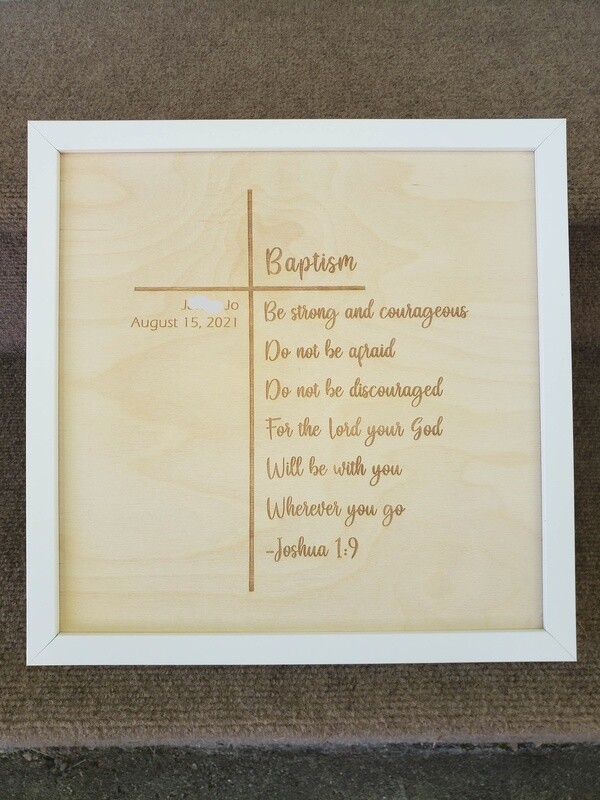 Baptism
Jo
August 15, 2021
Be strong and courageous
Do not be afraid
Do not be discouraged
For the Lord your God
Will be with you
Wherever you go
-Joshua 1:9